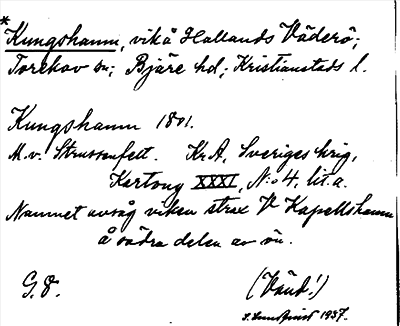 * Kungshamn, vik å Hallands Väderö;
Torekov sn; Bjäre hd; Kristianstads l.
Kungshamn 1801.
M. v. Strussenfelt. Kr.A, Sveriges krig,
Kartong XXXI, N:o 4, lit. a.
Namnet avsåg viken strax V Kapellshamn
å södra delen av ön.
G. F. (Vänd!)
S. Lundqvist 1937.